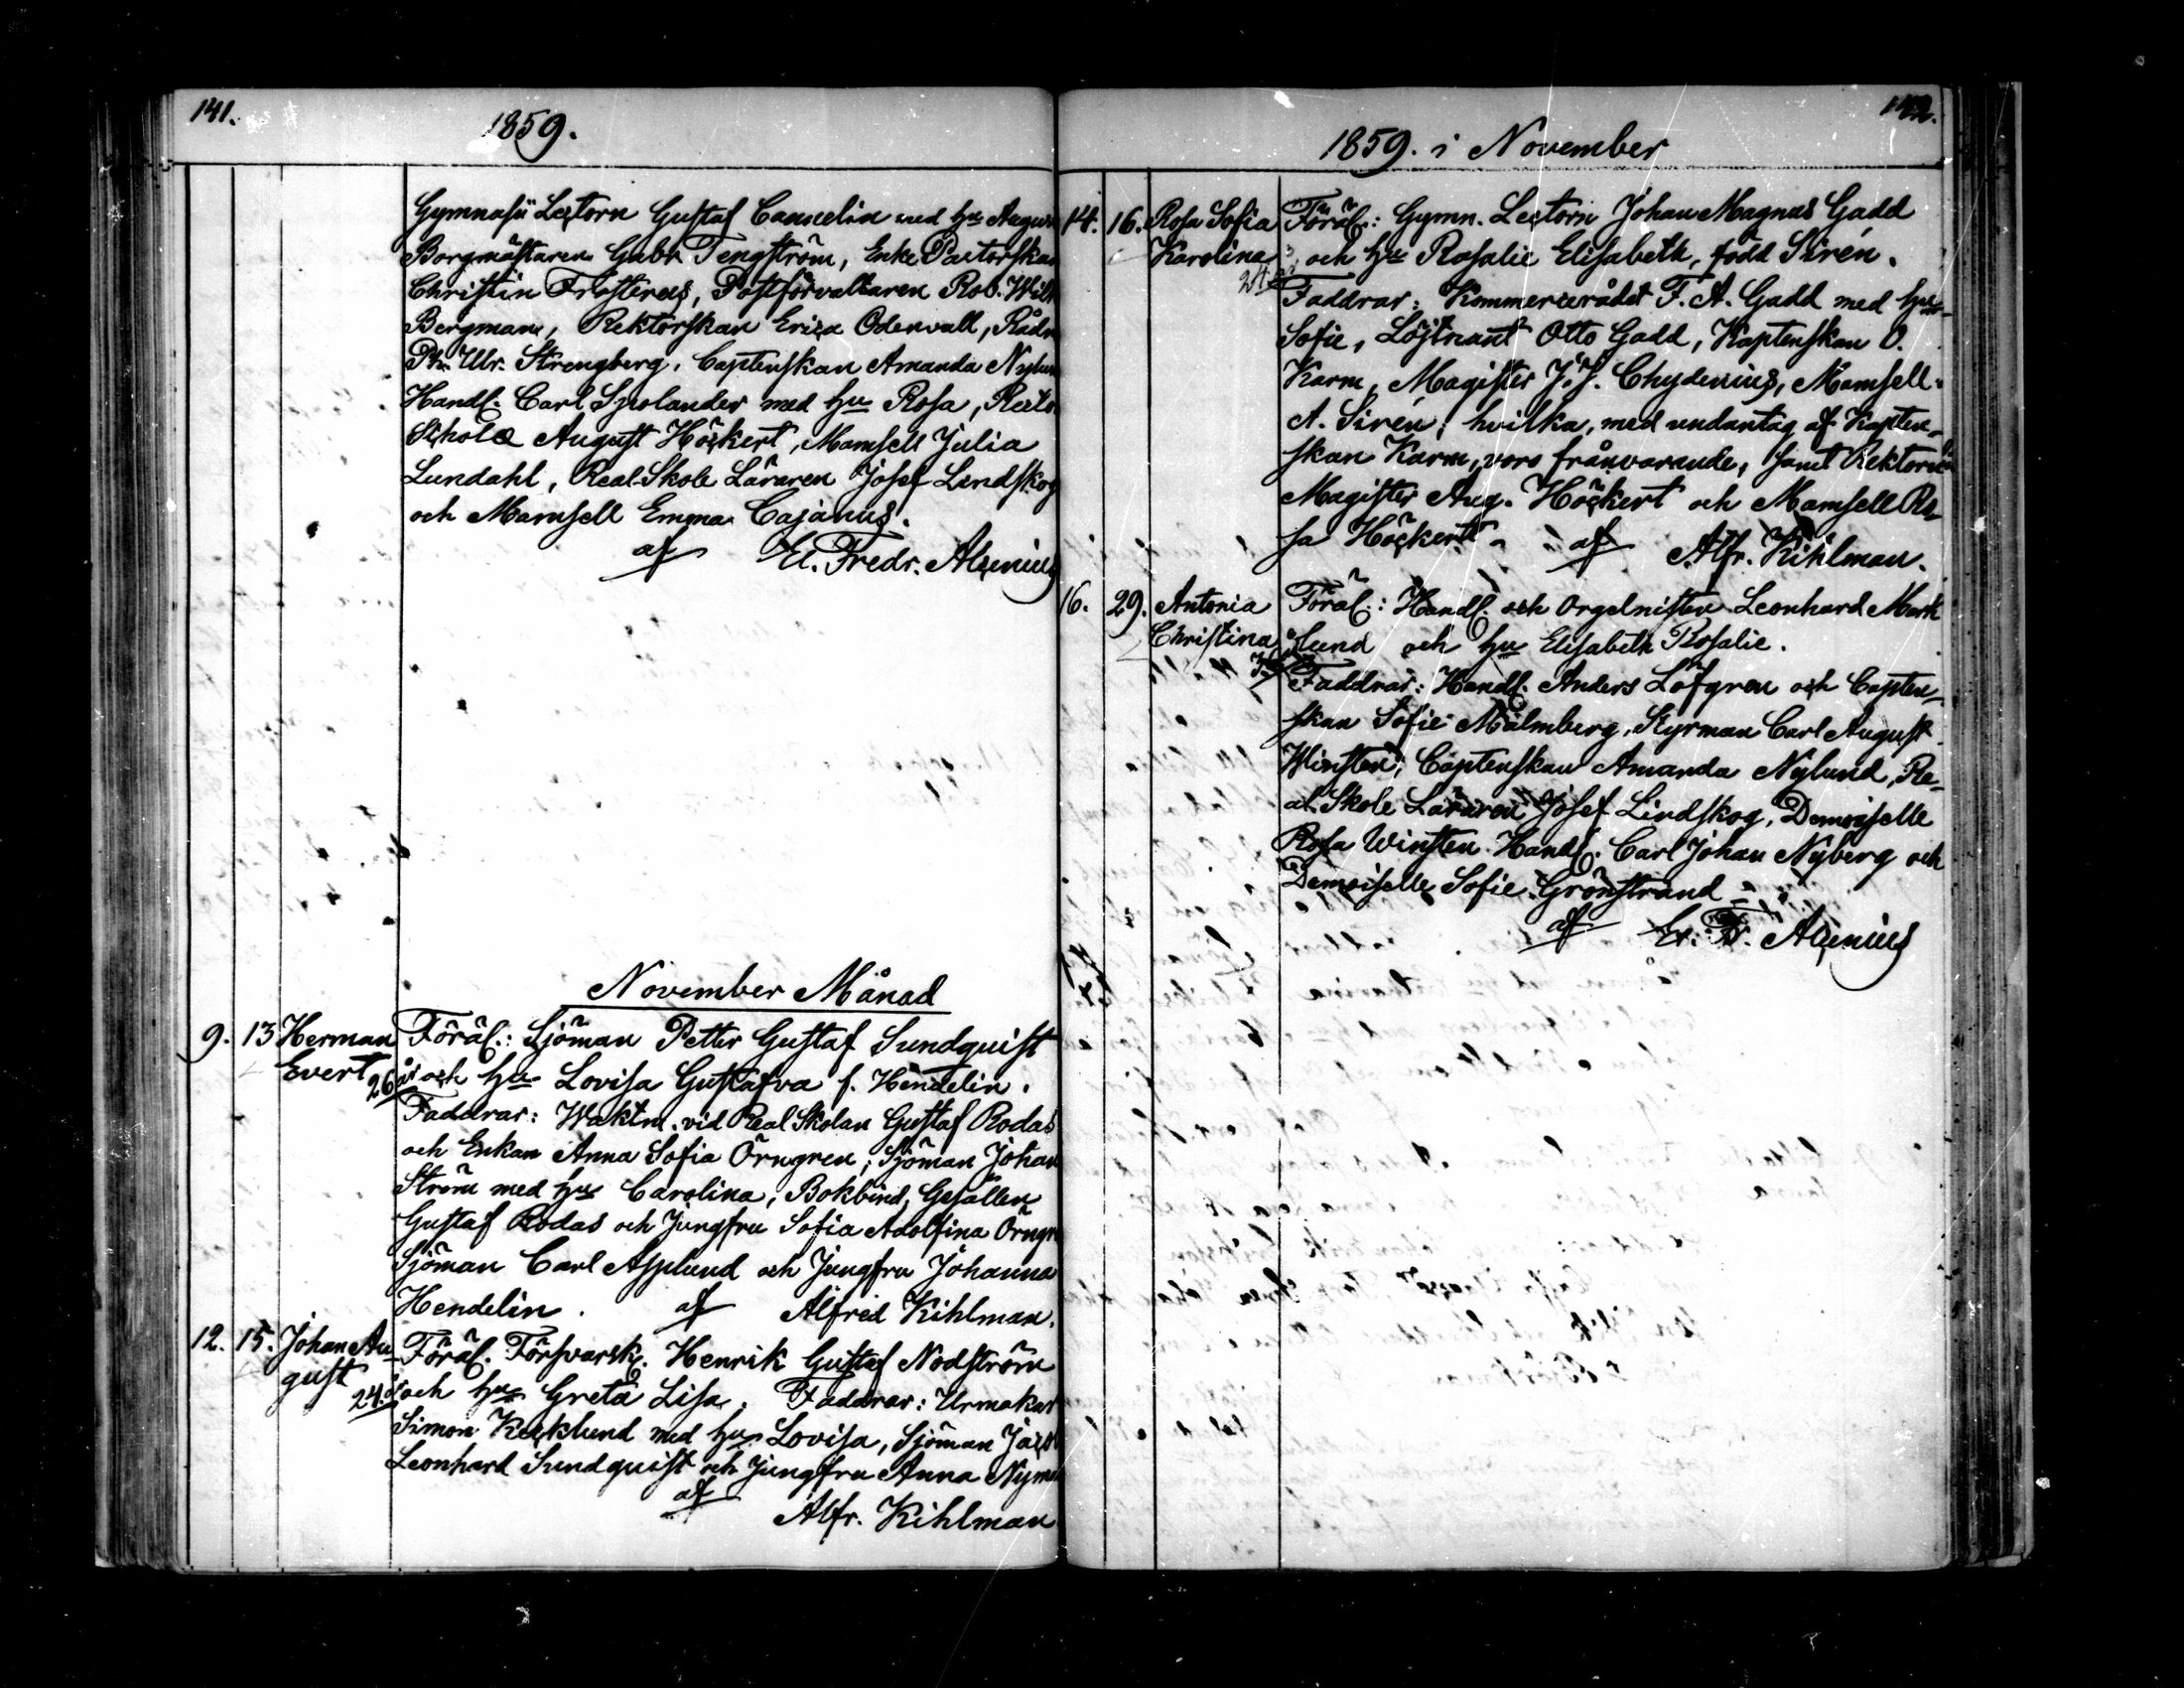 141.
1859.
Gymnasii Lectorn Gustaf Cannelin med hu
Borgmästaren Gabr Tengström, Enke Pastorskan
Christin Frosterus, Postförvaltaren Rob. Wilh
Bergman, Rektorskan Erica Odenvall, Rådm
Ph. Ulr. Strengberg, Captenskan Amanda Nylund
Handl. Carl Sjolander med hu Rosa, Rector
Scholæ August Höckert, Mamsell Julia
Lundahl, Real Skole Läraren Josef Lindskog
och Mamsell Emma Cajanus.
af El. Fredr. Alcenius
November Månad
9. 13 Herman Föräl.: Sjöman Petter Gustaf Sundquist
Evert 26 år och hu Lovisa Gustafva f. Hendelin.
Faddrar: Waktm. vid Real Skolan Gustaf Rodas
och Enkan Anna Sofia Örngren; Sjöman Johan
Ström med hu Carolina; Bokbind. Gesällen
Gustaf Rodas och Jungfru Sofia Adolfina Örngr
Sjöman Carl Asplund och Jungfru Johanna
Hendelin. af Alfred Kihlman.
12. 15. Johan Au- Föräl. Försvarsk. Henrik Gustaf Nodström
gust 24 år och hu Greta Lisa. Faddrar: Urmakar
Simon Kecklund med hu Lovisa, Sjöman Jacob
Leonhard Sundquist och Jungfru Anna Nyman
af
Alfr. Kihlman
142.
1859. i November
14. 16. Rosa Sofia Föräl.: Gymn. Lectorn Johan Magnus Gadd
Karolina 24 år och hu Rosalie Elisabeth, född Sirén.
Faddrar: Kommerserådet F. A. Gadd med hu
Sofie, Löjtnant Otto Gadd, Kaptenskan O.
Karm, Magister J. J. Chydenius, Mamsell
A. Sirén; hvilka, med undantag af Kapten-
skan Karm, voro frånvarande, samt Rektorn
Magister Aug. Höckert och Mamsell Ro-
sa Höckert - af Alfr. Kihlman.
16. 29. Antonia Föräl.: Handl. och Orgelnisten Leonhard Mark
Christina lund och hu Elisabeth Rosalie.
Faddrar: Handl. Anders Löfgren och Capten-
skan Sofie Malmberg, Styrman Carl August
Winsten, Captenskan Amanda Nylund, Re-
al. Skole Läraren Josef Lindskog, Demoiselle
Rosa Winsten Handl. Carl Johan Nyberg och
Demoiselle Sofie Grönstrand -
af El. Fr. Alcenius